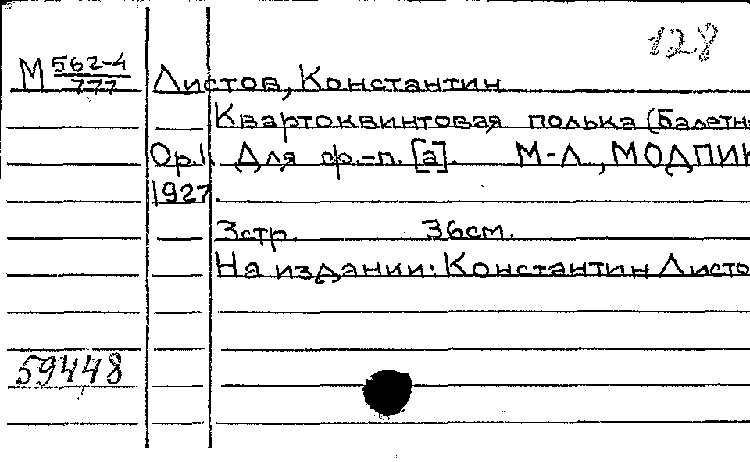 128
М 562-4
777
Листов, Константин
Квартоквинтовая полька (Балетн
Op.1. Для ф.-п. [а]. М-Л., МОДПИК
1927.
3стр. 36см.
На издании: Константин Листо
59448